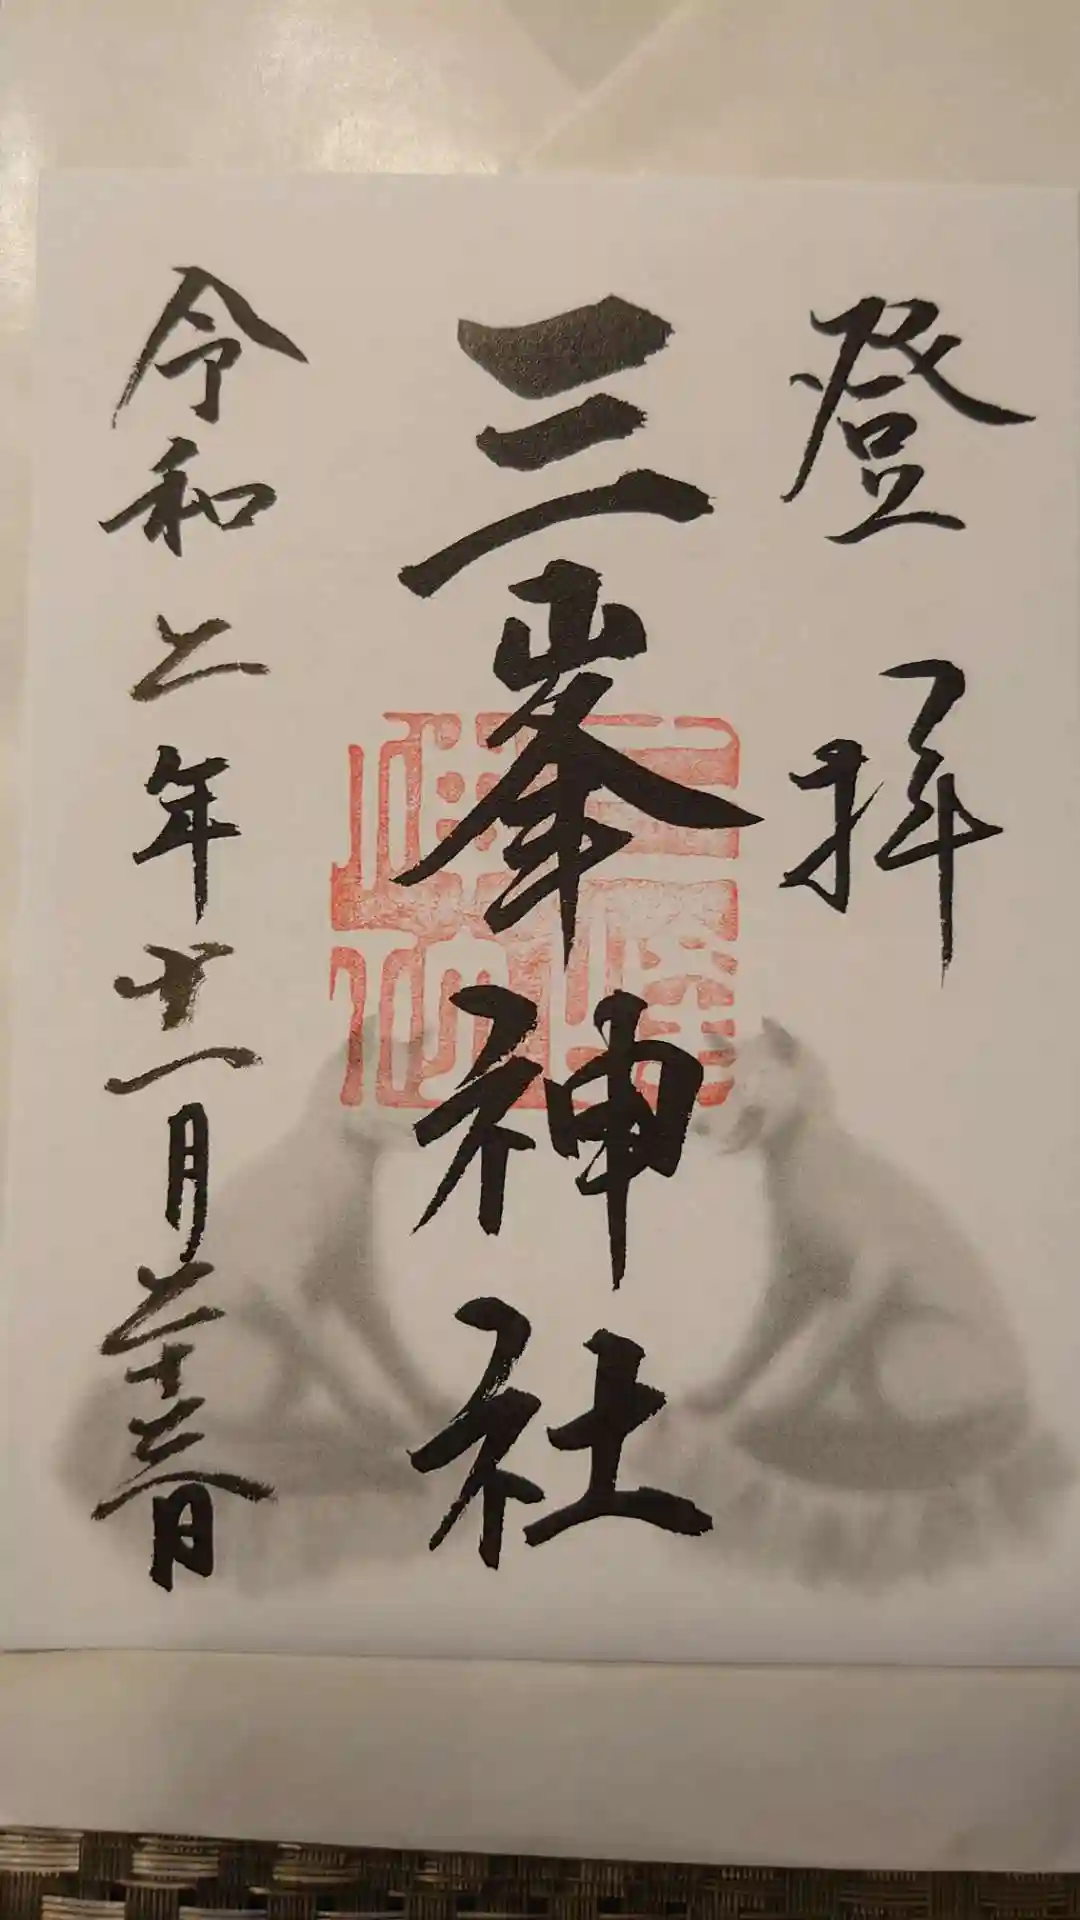 登拝
三峯神社
令和二年十一月二十三日